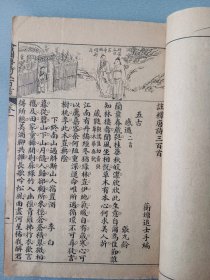 註釋唐詩三百首
蘅塘退士手編
五古
感遇二首 張九齡
蘭葉春葳蕤桂華秋皎潔欣欣此生意自爾為佳節誰
知林棲者聞風坐相悅草木有本心何求美人折
江南有丹橘經冬猶綠林豈伊地氣暖自有歲寒心可
以薦嘉客奈何阻重深運命惟所遇循環不可尋徒言
樹桃李此木豈無陰
下終南山過斛斯山人宿置酒 李白
暮從碧山下山月隨人歸卻顧所來徑蒼蒼橫翠微相
攜及田家童稚開荊扉綠竹入幽徑青蘿拂行衣歡言
得所憩美酒聊共揮長歌吟松風曲盡河星稀我醉君